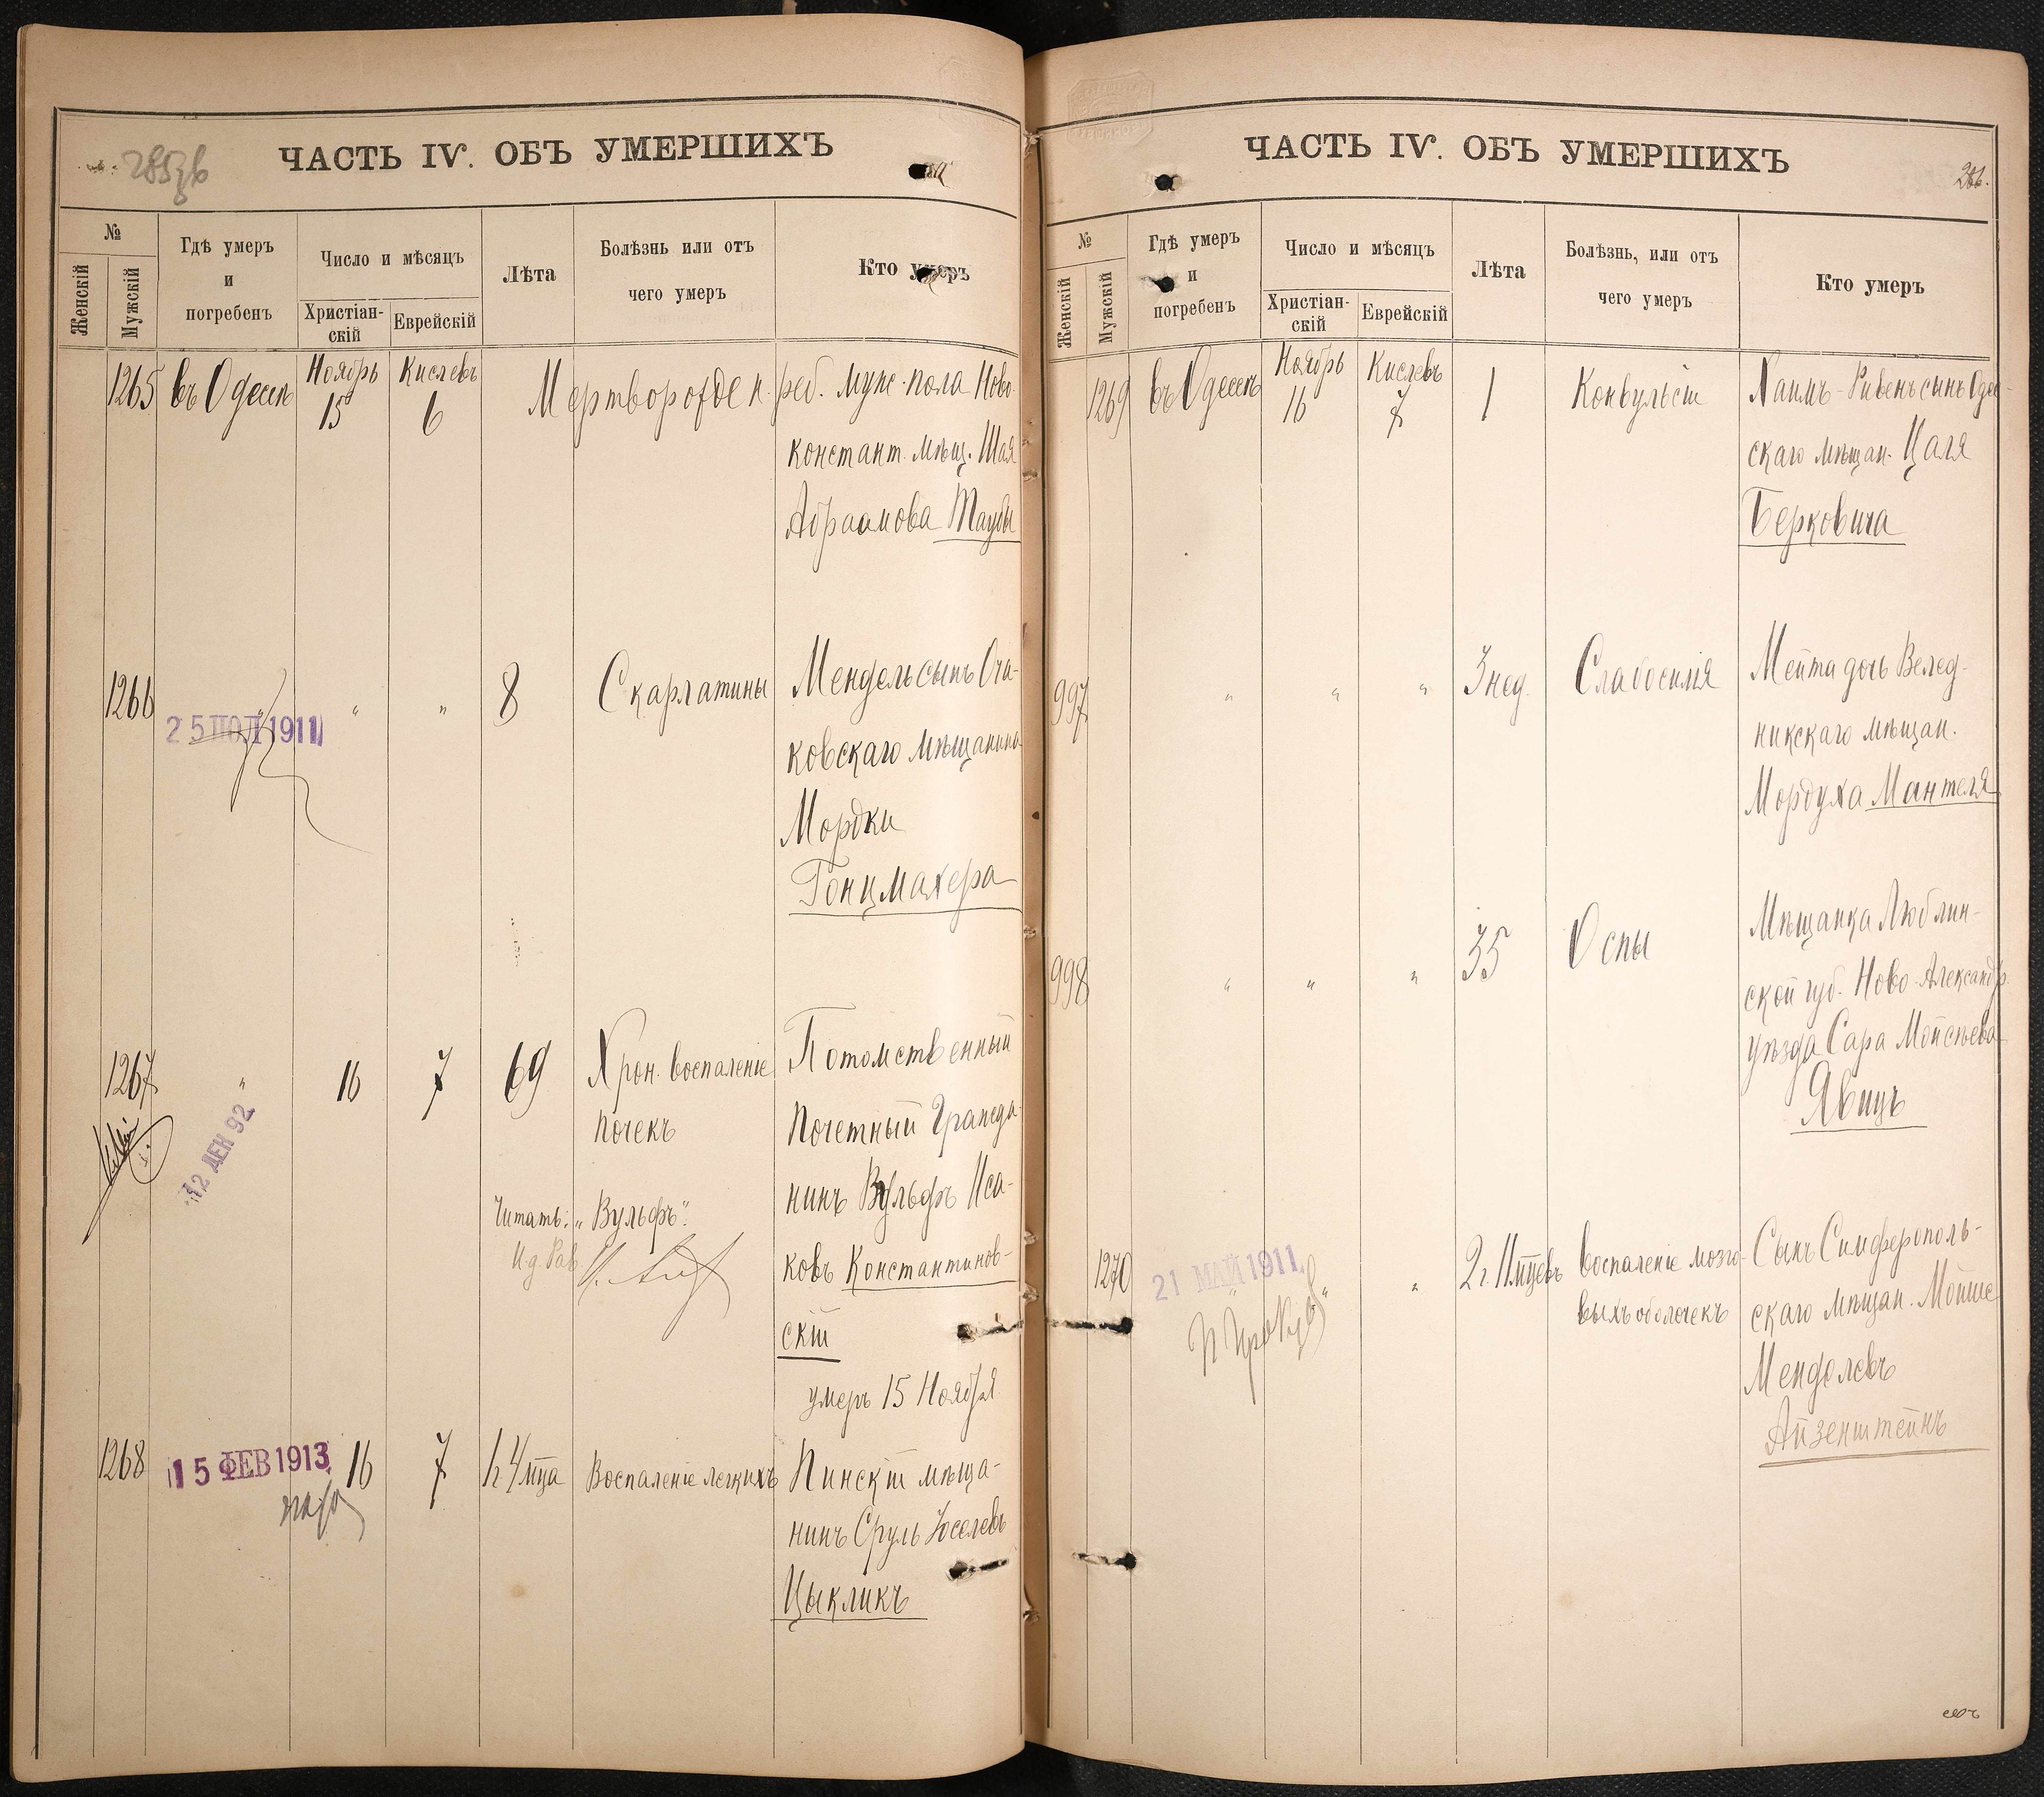 285 об
ЧАСТЬ IV. ОБЪ УМЕРШИХЪ
№
Женскій
Мужскій
Гдѣ умеръ
и
погребенъ
Число и мѣсяцъ
Христіан-
скій
Еврейскій
Лѣта
Болѣзнь или отъ
чего умеръ
Кто умеръ
1265 въ Одессѣ Ноябрь 15 Кислевъ 6 Мертворожден. реб. мужс. пола Ново-
констант. мѣщ. Шая
Абраамова Таубы
1266 " " " 8 Скарлатины Мендель сынъ Оча-
ковскаго мѣщанина
Мордки
Гонцмахера
25 1911
1267 " 16 7 69 Хрон. воспаленіе
почекъ
Потомственный
Почетный Гражда-
нинъ Вульфъ Иса-
ковъ Константинов-
скій
умеръ 15 Ноября
12 ДЕН 92
Читать: "Вульфъ".
И. д. Рав
1268 16 7 1г. 4 мца Воспаленіе легкихъ Пинскій мѣща-
нинъ Сруль Іоселевъ
Цыкликъ
15 ФЕВ 1913
ЧАСТЬ IV. ОБЪ УМЕРШИХЪ
286.
№
Женскій
Мужскій
Гдѣ умеръ
и
погребенъ
Число и мѣсяцъ
Христіан-
скій
Еврейскій
Лѣта
Болѣзнь, или отъ
чего умеръ
Кто умеръ
1269 въ Одессѣ Ноябрь 16 Кислевъ 7 1 Конвульсіи Хаимъ-Ривенъ сынъ Одес-
скаго мѣщан. Цаля
Берковича
997 " " " 3 нед. Слабосилія Мейта дочь Велед-
никскаго мѣщан.
Мордуха Мантеля
998 " " " 35 Оспы Мѣщанка Люблин-
ской губ. Ново-Александр.
уѣзда Сара Мойсѣева
Явицъ
1270 " " " 2 г. 11 мцевъ воспаленіе мозго-
выхъ оболочекъ
Сынъ Симферополь-
скаго мѣщан. Мойше
Менделевъ
Айзенштейнъ
21 МАЙ 1911